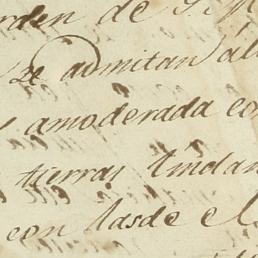 orden de S.
se admitan al
amoderada con
tierras lindan
con lasde el